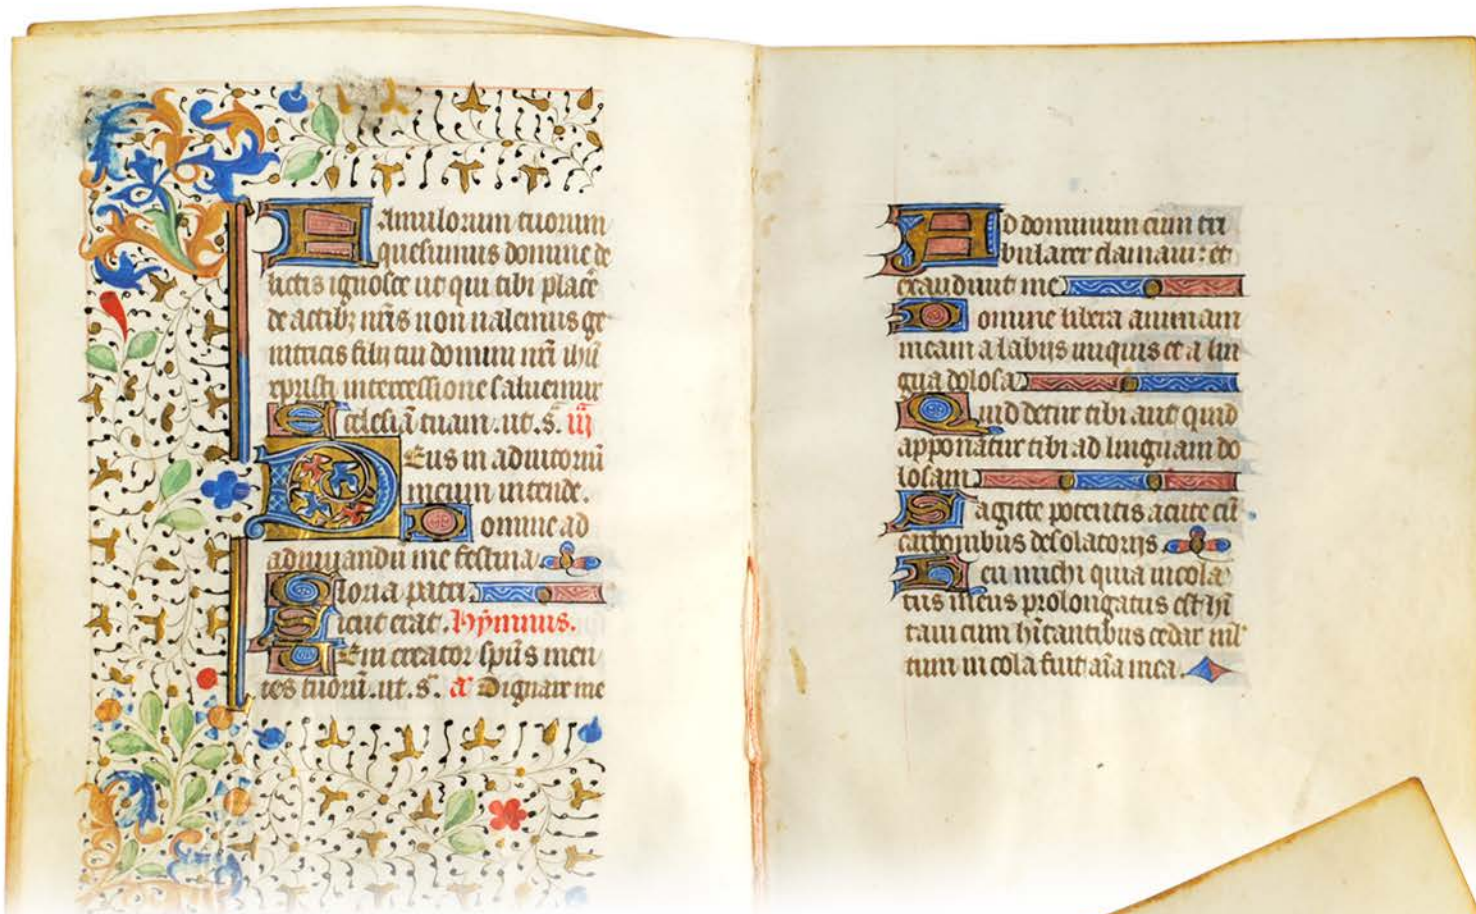 Famulorum tuorum
quesumus domine de
lictis ignosce ut qui tibi placē
de actibꝫ nr̄is non ualemus ge
nitricis filij tui domini nr̄i ihū
xpristi intercessione saluemur
Ecclesiā tuam. ut. s̄. iij̄
Deus in adiutoriū
meum intende.
Domine ad
adiuuandū me festina
Gloria patri.
Sicut erat. Hỹmnus.
Uem creator spūs men
tes tuorū. ut. s̄. a Dignare me
Ad dominum cum tri
bularer clamaui: et
exaudiuit me
Domine libera animam
meam a labijs iniquis et a lin
gua dolosa
Quid detur tibi aut quid
apponatur tibi ad linguam do
losam
Sagitte potentis acute cū
carbonibus desolatorijs
Heu michi quia incola
tus meus prolongatus est hī
taui cum hītantibus cedar mĺ
tum incola fuit aīa mea.